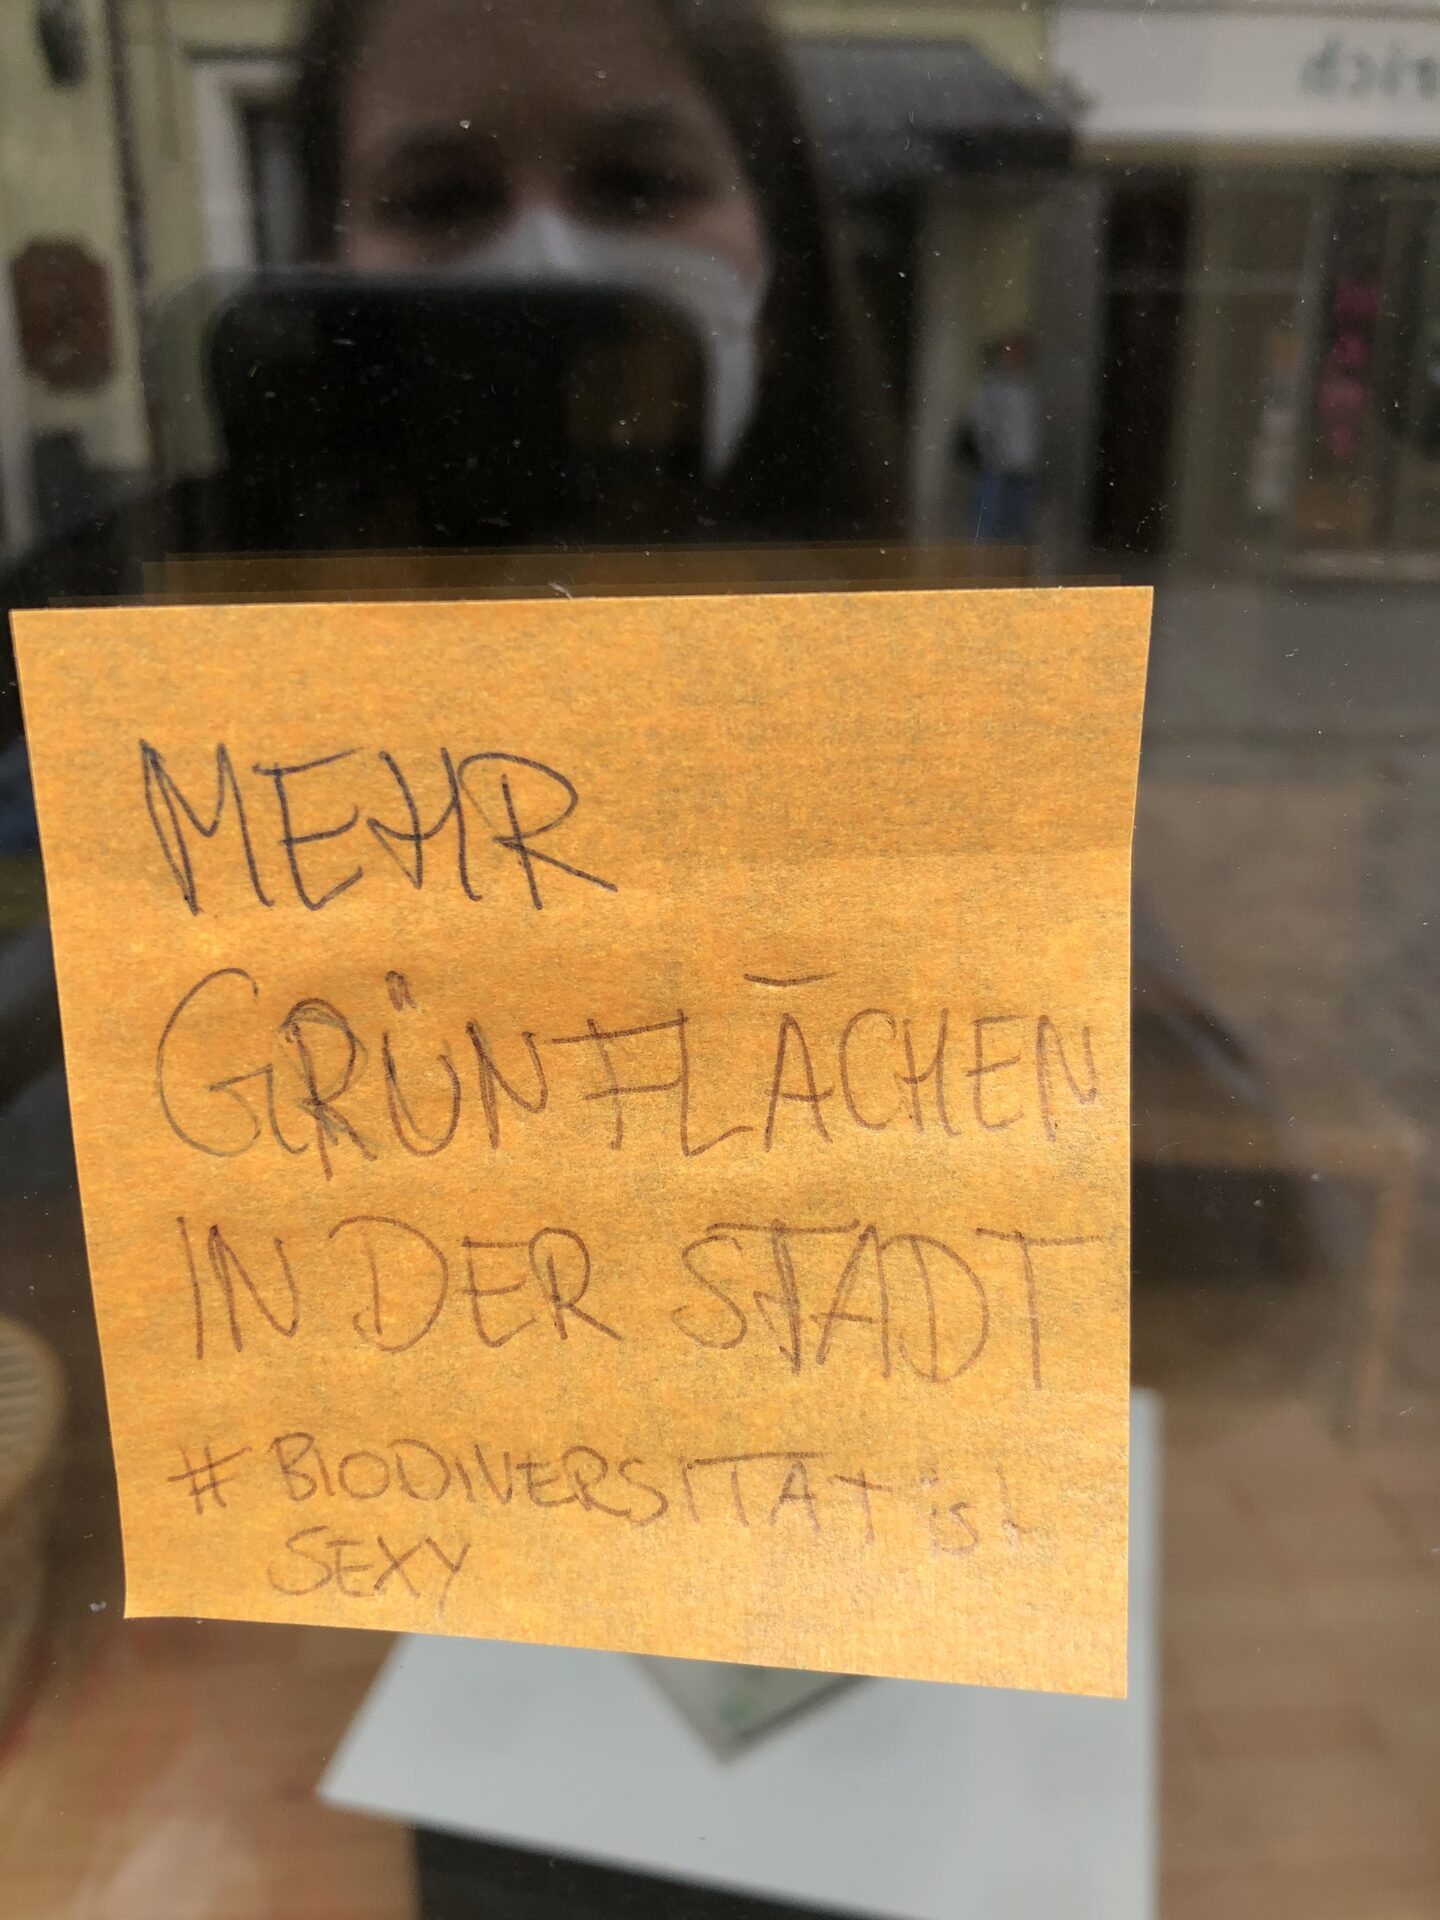 MEHR
GRÜNFLÄCHEN
IN DER STADT
# BIODIVERSITÄT ist
SEXY